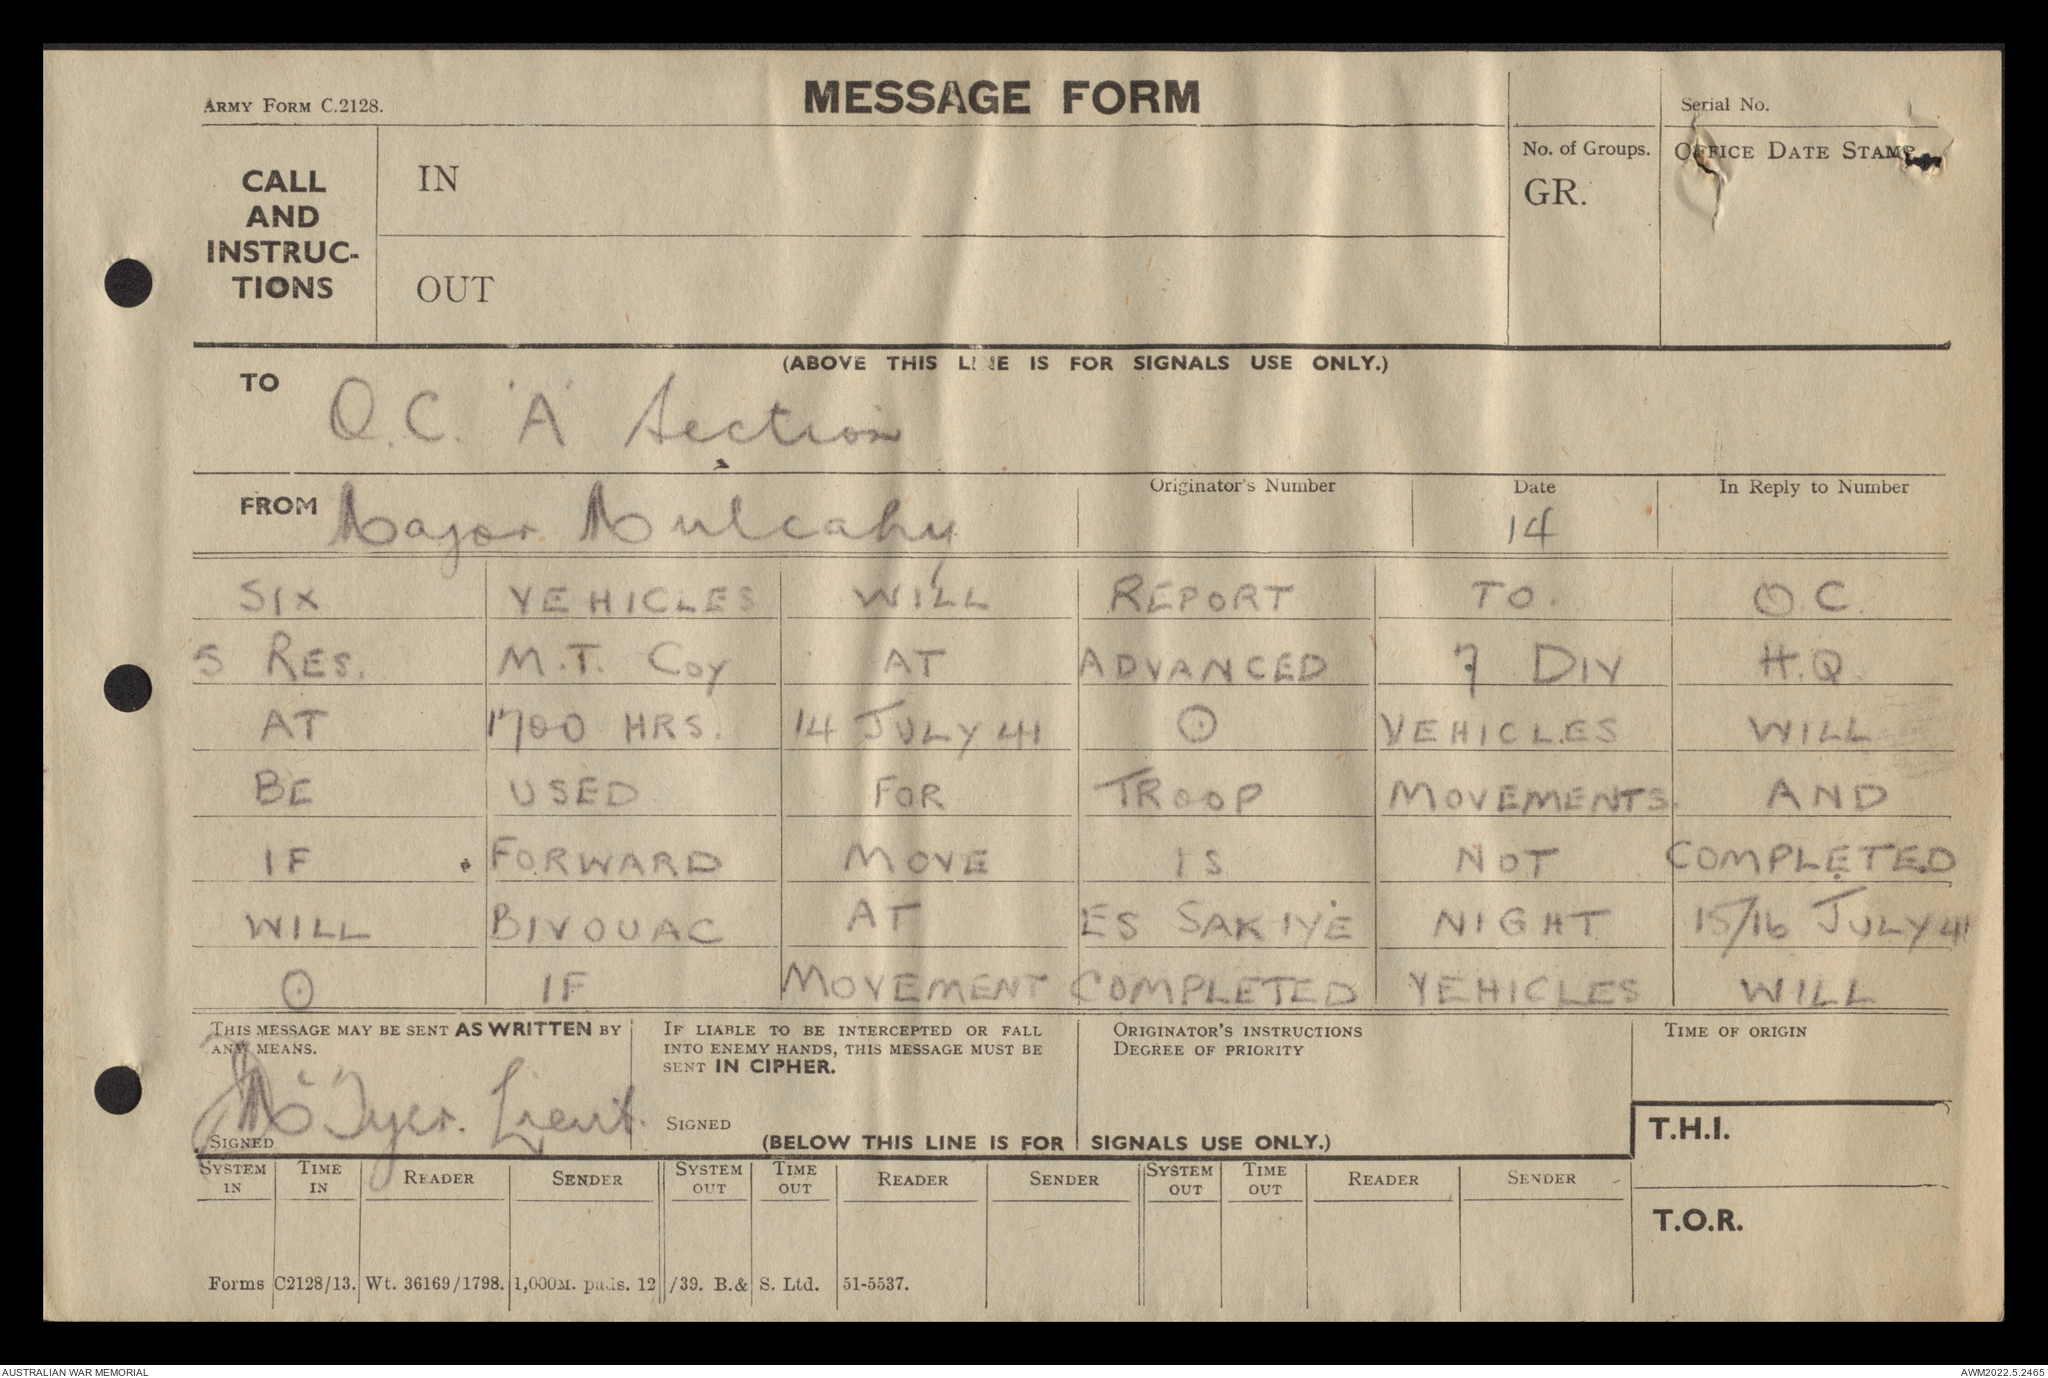 ARMY FORM C.2128.
MESSAGE FORM
Serial No.
CALL AND INSTRUC-TIONS
IN
OUT
No. of Groups.
GR.
OFFICE DATE STAMP
(ABOVE THIS LINE IS FOR SIGNALS USE ONLY.)
TO O.C. 'A' Section
FROM Major Mulcahy
Originator's Number
Date
14
In Reply to Number
SIX VEHICLES WILL REPORT TO. O.C.
5 RES. M.T. COY AT ADVANCED 7 DIV H.Q.
AT 1700 HRS. 14 JULY 41 ⊙ VEHICLES WILL
BE USED FOR TROOP MOVEMENTS. AND
IF FORWARD MOVE IS NOT COMPLETED
WILL BIVOUAC AT ES SAKIYE NIGHT 15/16 JULY 41
⊙ IF MOVEMENT COMPLETED VEHICLES WILL
THIS MESSAGE MAY BE SENT AS WRITTEN BY
ANY MEANS.
Tyer. Lieut.
SIGNED
IF LIABLE TO BE INTERCEPTED OR FALL
INTO ENEMY HANDS, THIS MESSAGE MUST BE
SENT IN CIPHER.
SIGNED
ORIGINATOR'S INSTRUCTIONS
DEGREE OF PRIORITY
TIME OF ORIGIN
(BELOW THIS LINE IS FOR SIGNALS USE ONLY.)
T.H.I.
T.O.R.
SYSTEM IN TIME IN READER SENDER SYSTEM OUT TIME OUT READER SENDER SYSTEM OUT TIME OUT READER SENDER
Forms C2128/13. Wt. 36169/1798. 1,000M. pads. 12/39. B.& S. Ltd. 51-5537.
AUSTRALIAN WAR MEMORIAL
AWM2022.5.2465